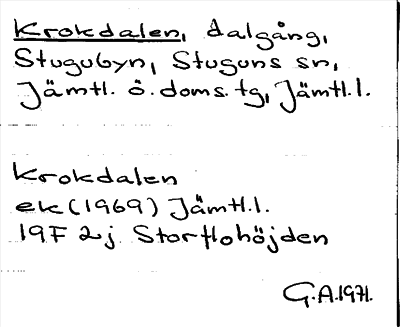 Krokdalen, dalgång,
Stugubyn, Stuguns sn,
Jämtl. ö. doms. tg, Jämtl.l.
Krokdalen
ek (1969) Jämtl.l.
19F 2j Storflohöjden
G.A.1971.